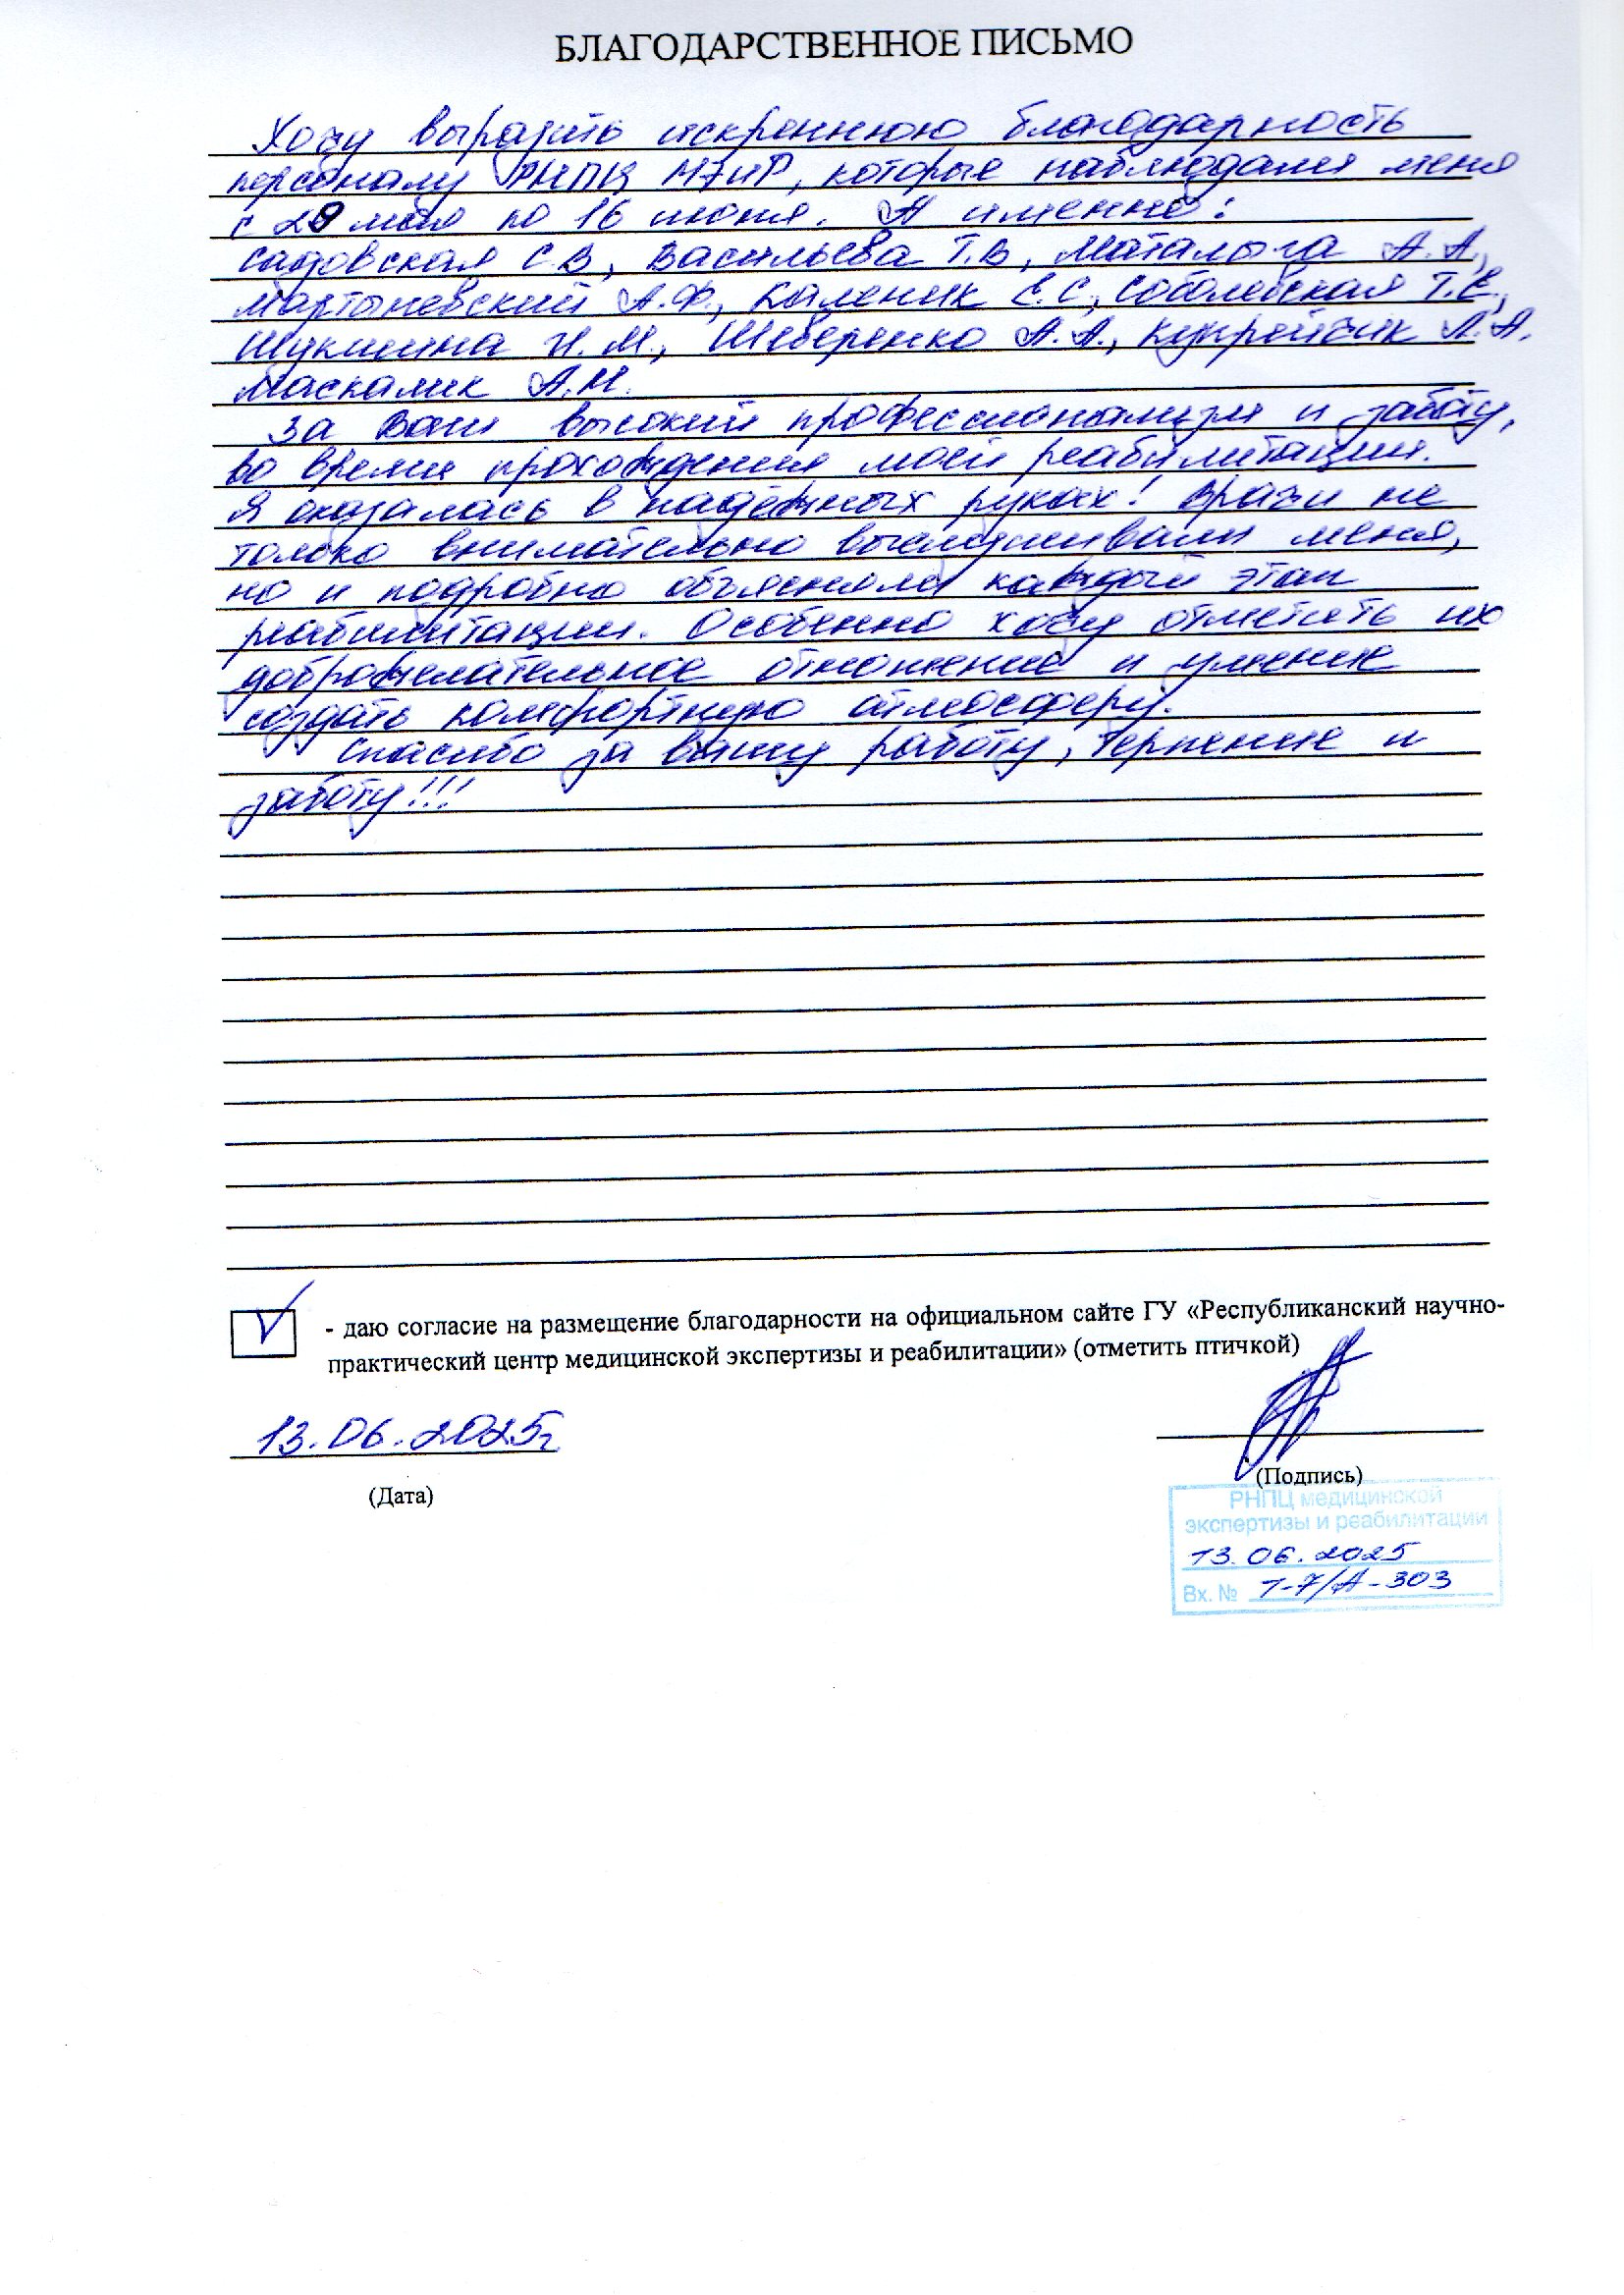 БЛАГОДАРСТВЕННОЕ ПИСЬМО
Хочу выразить искреннюю благодарность
персоналу РНПЦ МЭиР, которые наблюдали меня
с 28 мая по 16 июня. А именно:
Садовская С.В, Васильева Т.В, Маталыга А.А,
Мартыневский А.Ф., Каленик Е.С., Соболевская Т.Е.,
Шукшина Н.М., Шеверенко А.А., Купрейчик Л.А.
Маскалик А.М.
За Ваш высокий профессионализм и заботу,
во время прохождения моей реабилитации.
Я оказалась в надёжных руках! Врачи не
только внимательно выслушивали меня,
но и подробно объясняли каждый этап
реабилитации. Особенно хочу отметить их
доброжелательное отношение и умение
создать комфортную атмосферу.
Спасибо за вашу работу, терпение и
заботу!!!
- даю согласие на размещение благодарности на официальном сайте ГУ «Республиканский научно-
практический центр медицинской экспертизы и реабилитации» (отметить птичкой)
13.06.2025г.
(Дата)
(Подпись)
РНПЦ медицинской
экспертизы и реабилитации
13.06.2025
Вх. № 1-7/А-303